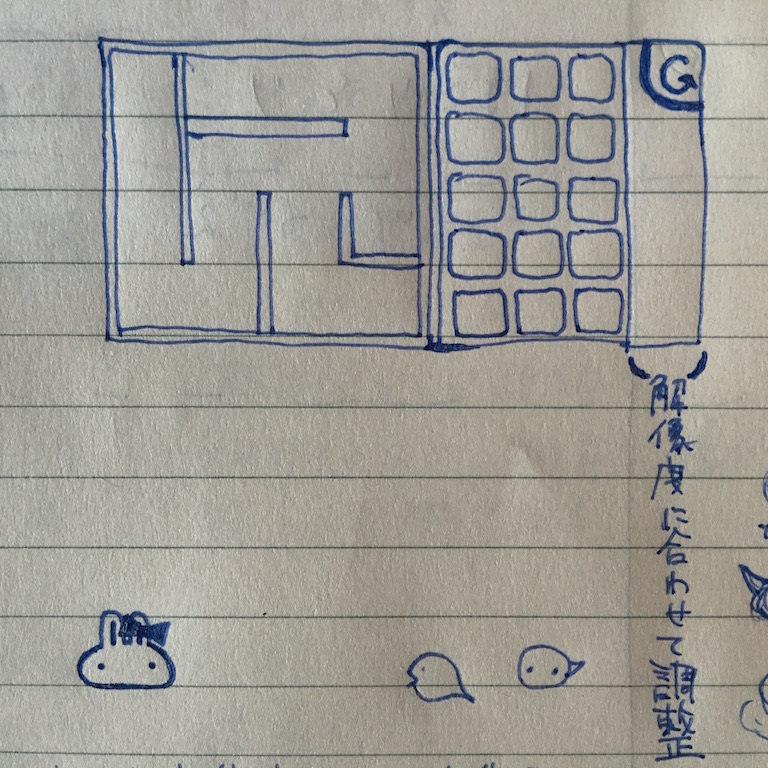 G
解像度に合わせて調整